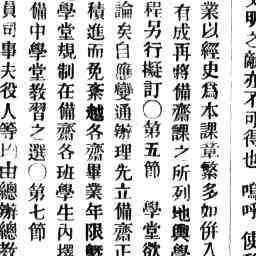 明之敵亦不可得也 嗚呼 使
業以經史爲本課章繁多如併入
有成再將備齋課之所列地輿學
程另行擬訂○第五節 學堂欲
論矣自應變通辦理先立備齋正
積進而免棄越各齋畢業年限
學堂規制在備齋各班學生內擇
備中學堂教習之選○第七節
員司事夫役人等均由總辦總教